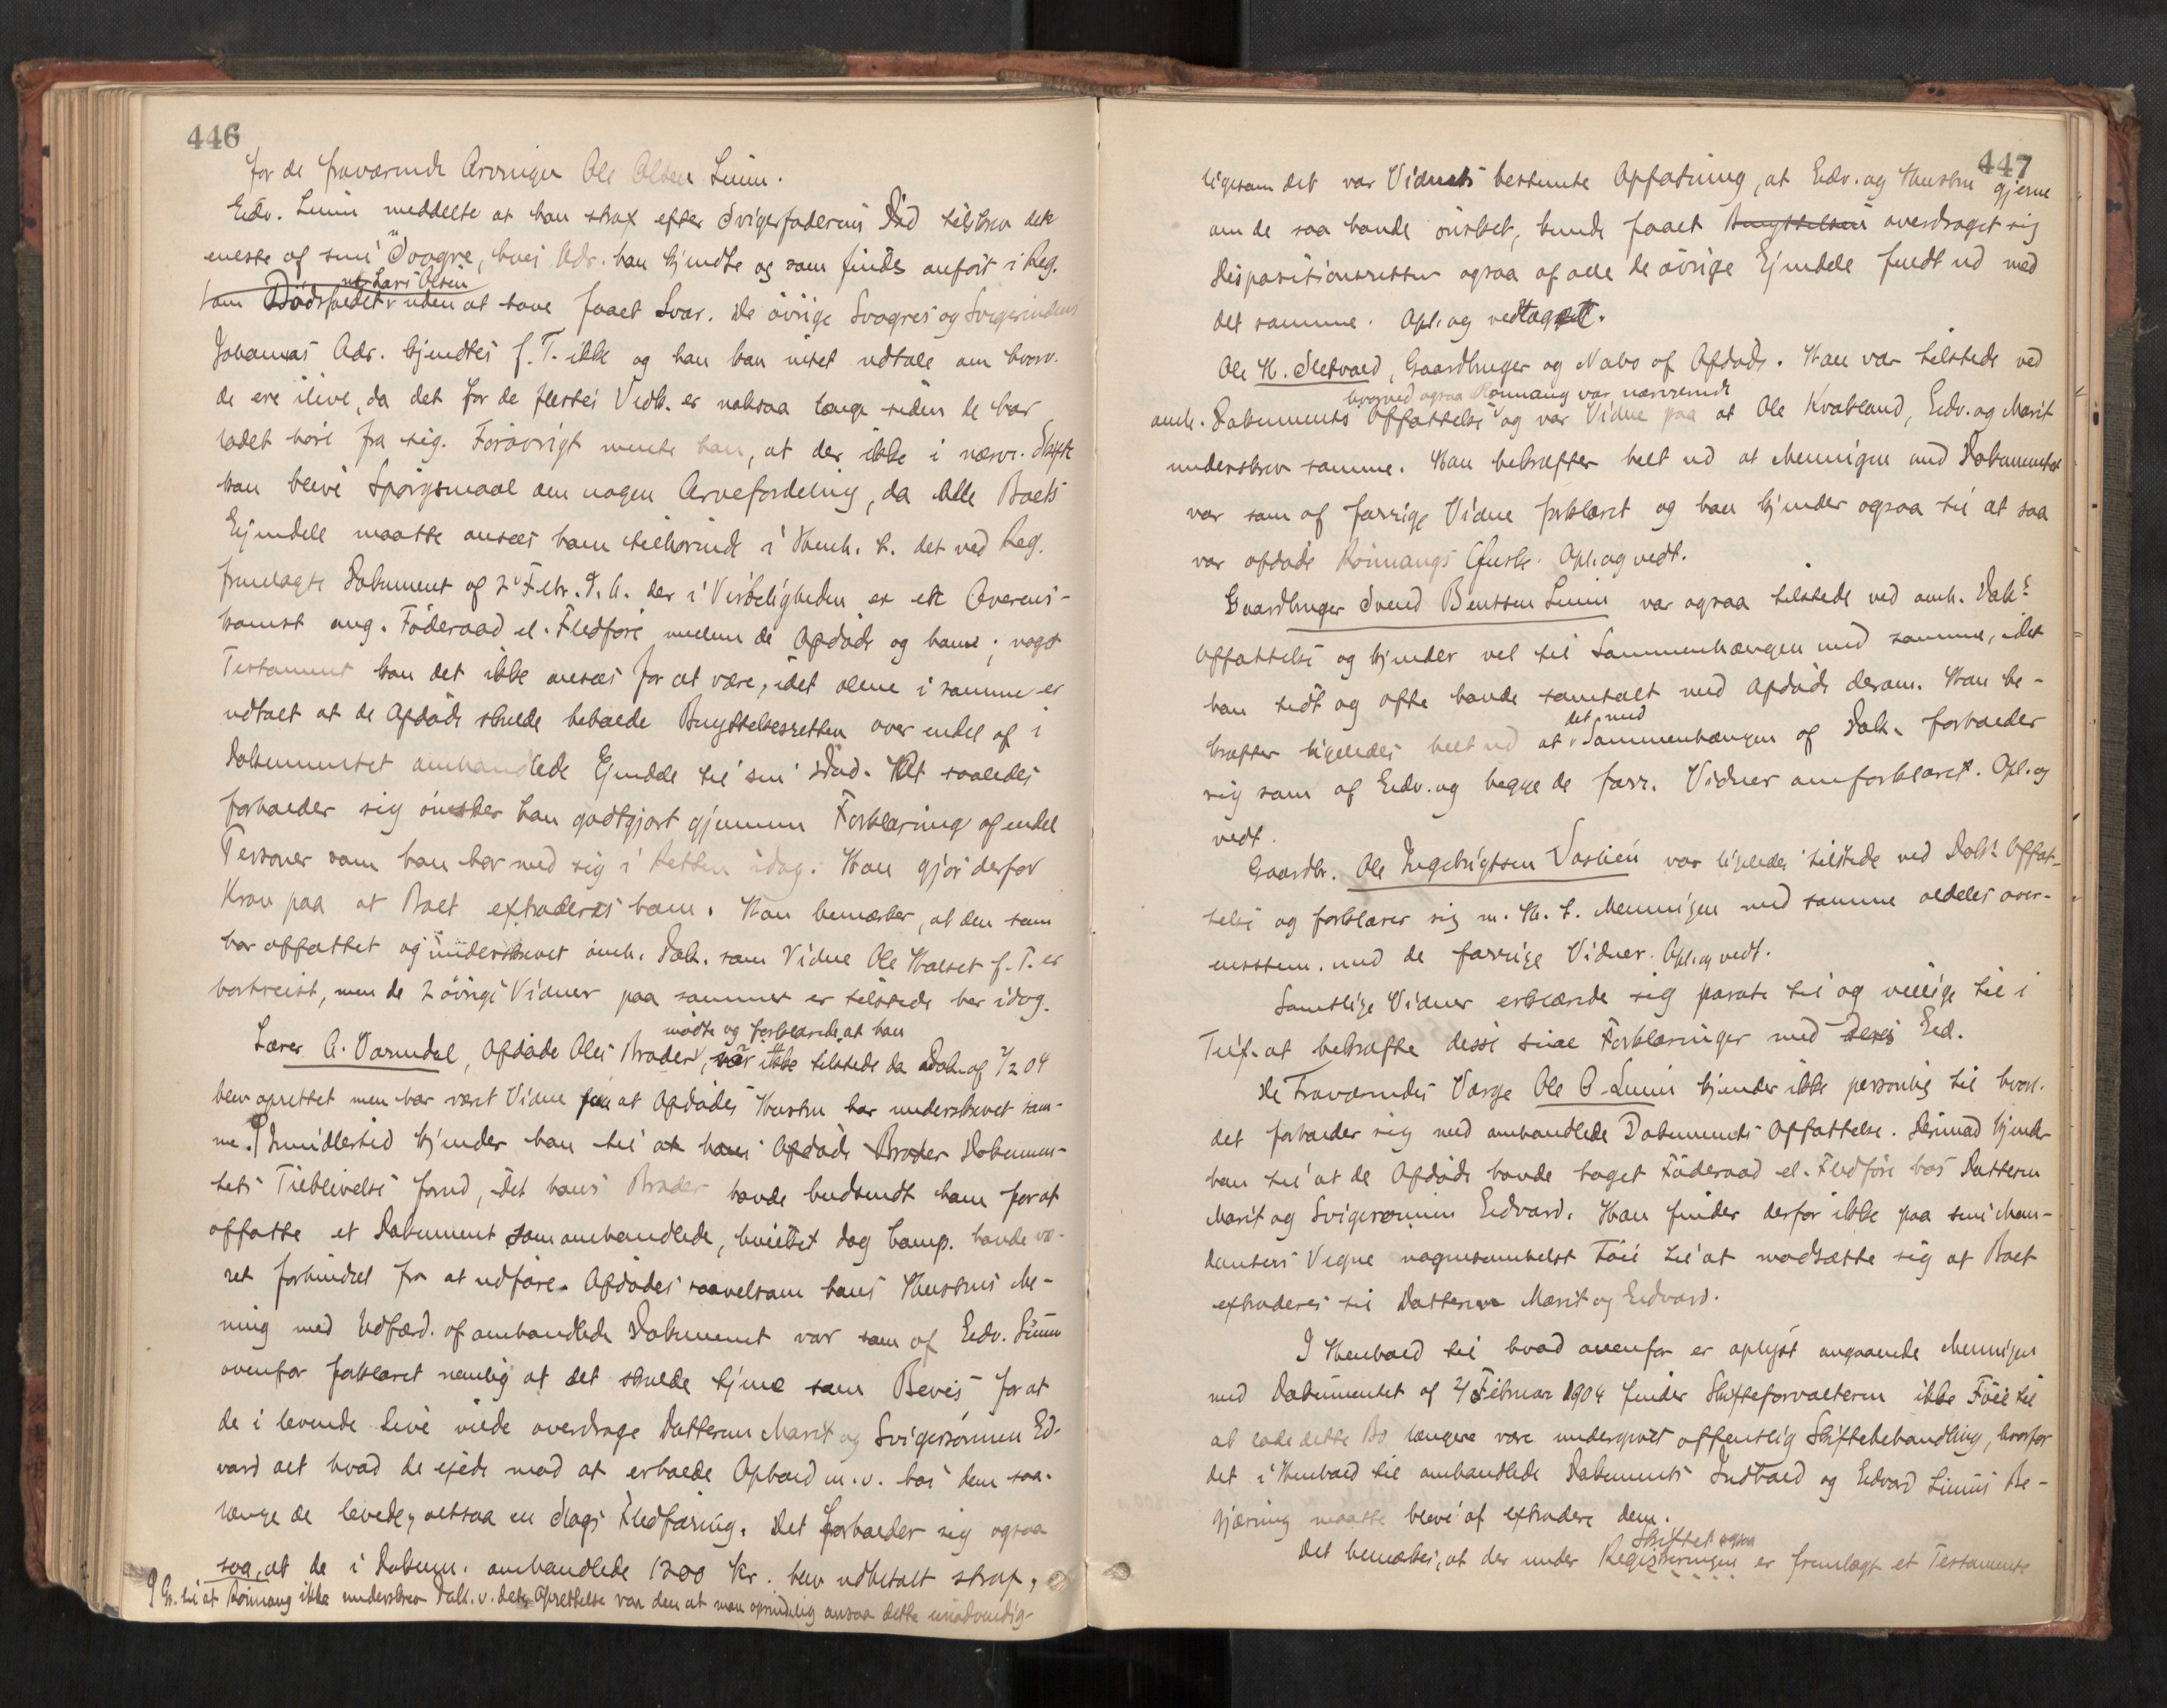 446
for de fraværende Arvinger Ole Olsen Lium.
Edv. Lium meddelte at han strax efter Svigerfaderens Død tilskrev den
eneste af sine Svogre, hvis Adr. han kjendte og som findes anført i Reg.
nl. Lars Olsen
som Dødsfaldet uden at have faaet Svar. De øvrige Svogres og Svigerindens
Johannas Adr. kjendtes f. T. ikke og han kan intet udtale om hvorv.
de ere ilive, da det for de flestes Vedk. er noksaa længe siden de har
ladet høre fra sig. Forøvrigt mente han, at der ikke i nærv. Skifte
kan blive Spørgsmaal om nogen Arvefordeling, da Alle Boets
Ejendele maatte ansees ham tilhørende i Henh. t. det ved Reg.
fremlagte Dokument af 2 Febr. d. A. der i Virkeligheden er en Overens-
komst ang. Føderaad el. Fledføre mellem de Afdøde og ham; noget
Testament kan det ikke ansees for at være, idet alene i samme er
udtalt at de Afdøde skulde beholde Benyttelsesretten over endel af i
Dokumentet omhandlede Ejendele til sin Død. At saaledes
forholder sig ønsker han godtgjort gjennem Forklaring af endel
Personer som han har med sig i Retten idag. Han gjør derfor
Krav paa at Boet extraderes ham. Han bemærker, at den som
har affattet og underskrevet omh. Dok. som Vidne Ole Halset f. T. er
bortreist, men de 2 øvrige Vidner paa sammes er tilstede her idag.
mødte og forklarede at han
Lærer A. Varmdal, Afdøde Oles Broder, var ikke tilstede da Dok. af 2/2 04
blev oprettet men har været Vidne paa at Afdødes Hustru har underskrevet sam-
me. Imidlertid kjender han til at hans Afdøde Broder Dokumen-
tets Tilblivelse forud, idet hans Broder havde budsendt ham for at
affatte et Dokument som omhandlede, hvilket dog Comp. havde væ-
ret forhindret fra at udføre. Afdødes saavelsom hans Hustrus Me-
ning med Udfærd. af omhandlede Dokument var som af Edv. Lium
ovenfor forklaret nemlig at det skulde tjene som Bevis for at
de i levende Live vilde overdrage Datteren Marit og Svigersønnen Ed-
vard alt hvad de ejede mod at erholde Ophold m. v. hos dem saa-
længe de levede, altsaa en slags Fledføring. Det forholder sig ogsaa
saa, at de i Dokum. omhandlede 1200 Kr. blev udbetalt strax,
Gr. til at Rønnaug ikke underskrev Dok. v. dets Oprettelse var den at man oprindelig ansaa dette unødvendig
447
ligesom det var Vidnets bestemte Opfatning, at Edv. og Hustru gjerne
om de saa havde ønsket, kunde faaet Benyttelsen overdraget sig
Dispositionsretten ogsaa af alle de øvrige Ejendele fuldt ud med
det samme. Opl. og vedtaget.
Ole H. Sletvold, Gaardbruger og Nabo af Afdøde. Han var tilstede ved
hvorved ogsaa Rønnaug var nærværende
omh. Dokuments Affattelse og var Vidne paa at Ole Kvakland, Edv. og Marit
underskrev samme. Han bekræfter helt ud at Meningen med Dokumentet
var som af forrige Vidne forklaret og han kjender ogsaa til at saa
var afdøde Rønnaugs Ønske. Opl. og vedt.
Gaardbruger Svend Bentsen Lium var ogsaa tilstede ved omh. Dok.s
Affattelse og kjender vel til Sammenhængen med samme, idet
han tidt og ofte havde samtalt med Afdøde derom. Han be-
det med
kræfter ligeledes helt ud at Sammenhængen af Dok. forholder
sig som af Edv. og begge de forr. Vidner omforklaret. Opl. og
vedt.
Gaardbr. Ole Ingebrigtsen Vaslien var ligeledes tilstede ved Dok.s Affat-
telse og forklarer sig m. H. t. Meningen med samme aldeles over-
ensstem. med de forrige Vidner. Opl. og vedt.
Samtlige Vidner erklærede sig parate til og villige til i
Tilf. at bekræfte disse sine Forklaringer med deres Eed.
De Fraværendes Værge Ole O. Lium kjender ikke personlig til hvorl.
det forholder sig med omhandlede Dokuments Affattelse. Derimod kjender
han til at de Afdøde havde taget Føderaad el. Fledføre hos Datteren
Marit og Svigersønnen Edvard. Han finder derfor ikke paa sine Man-
danters Vegne nogensomhelst Føie til at modsætte sig at Boet
extraderes til Datteren Marit og Edvard.
I Henhold til hvad ovenfor er oplyst angaaende Meningen
med Dokumentet af 2/ Februar 1904 finder Skifteforvalteren ikke Føie til
at lade dette Bo længere være undergivet offentlig Skiftebehandling, hvorfor
det i Henhold til omhandlede Dokuments Indhold og Edvard Liums Be-
gjæring maatte blive at extradere dem.
Skiftet ogsaa
Det bemærkes, at der under Registreringen er fremlagt et Testamente